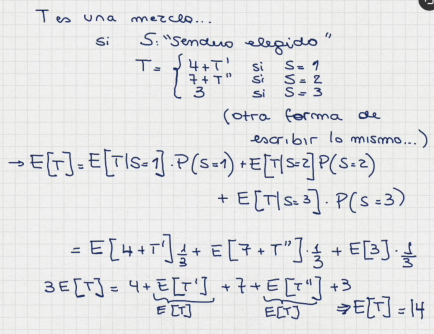 T es una mezcla...
si S: "Sendero elegido"
T = { 4+T' si S=1
7+T'' si S=2
3 si S=3
(otra forma de
escribir lo mismo...)
→ E[T] = E[T|S=1]·P(S=1) + E[T|S=2]P(S=2)
+ E[T|S=3]·P(S=3)
= E[4+T']1/3 + E[7+T'']·1/3 + E[3]·1/3
3E[T] = 4 + E[T'] + 7 + E[T''] + 3
E[T] E[T] ⇒ E[T] = 14